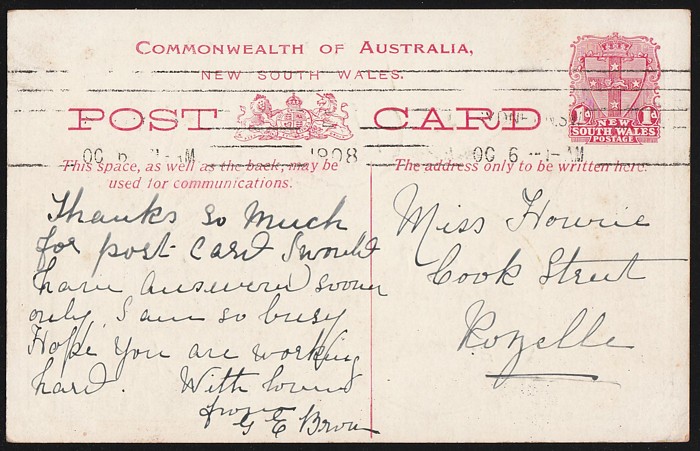 COMMONWEALTH OF AUSTRALIA,
NEW SOUTH WALES.
POST CARD
1d NEW 1d
SOUTH WALES
POSTAGE
OC 6 1-AM 1908
OC 6 -1-AM
This space, as well as the back, may be
used for communications.
The address only to be written here.
Thanks so much
for post card I would
have answered sooner
only I am so busy
Hope you are working
hard. With love
from
G E Brown
Miss Howie
Cook Street
Rozelle